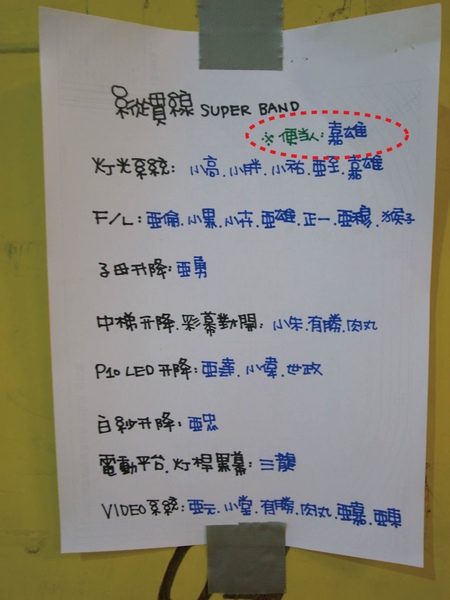 縱貫線 SUPER BAND
※ 便当人:嘉雄
灯光系統: 小高.小胖.小祐.亞至.嘉雄
F/L: 亞倫.小黑.小卉.亞雄.正一.亞穆.猴子
子母升降:亞勇
中梯升降.彩幕對開: 小朱.有勝.肉丸
P10 LED 升降:亞達.小偉.世政
白紗升降:亞忠
電動平台.灯桿黑幕:三龍
VIDEO系統:亞元.小堂.有勝.肉丸.亞嘉.亞東